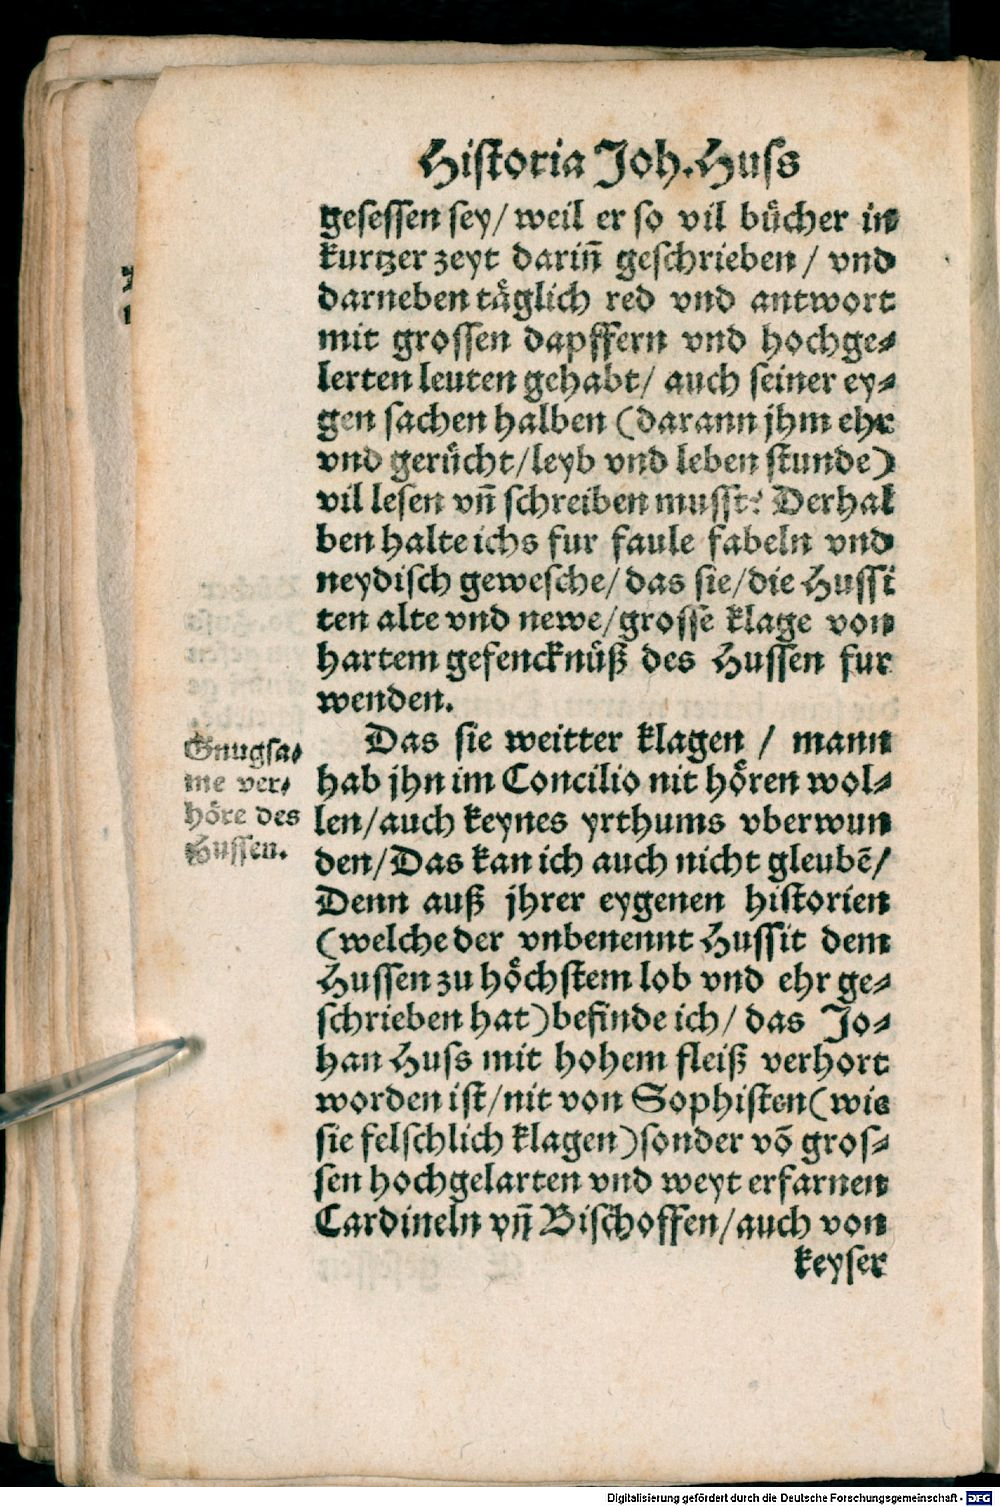 Historia Joh. Huss
gesessen sey/ weil er so vil bücher in
kurtzer zeyt dariñ geschrieben/ vnd
darneben täglich red vnd antwort
mit grossen dapffern vnd hochge⸗
lerten leuten gehabt/ auch seiner ey⸗
gen sachen halben (darann jhm ehr
vnd gerücht/leyb vnd leben stunde)
vil lesen vñ schreiben musst: Derhal
ben halte ichs fur faule fabeln vnd
neydisch gewesche/ das sie/die Hussi
ten alte vnd newe/grosse klage von
hartem gefencknüß des Hussen fur
wenden.
Gnugsa⸗
me ver⸗
höre des
Hussen.
Das sie weitter klagen / mann
hab jhn im Concilio nit hören wol⸗
len/auch keynes yrthums vberwun
den/Das kan ich auch nicht gleubẽ/
Denn auß jhrer eygenen historien
(welche der vnbenennt Hussit dem
Hussen zu höchstem lob vnd ehr ge⸗
schrieben hat)befinde ich/ das Jo⸗
han Huss mit hohem fleiß verhort
worden ist/nit von Sophisten(wie
sie felschlich klagen)sonder võ gros⸗
sen hochgelarten vnd weyt erfarnen
Cardineln vñ Bischoffen/auch von
keyser
Digitalisierung gefördert durch die Deutsche Forschungsgemeinschaft - DFG